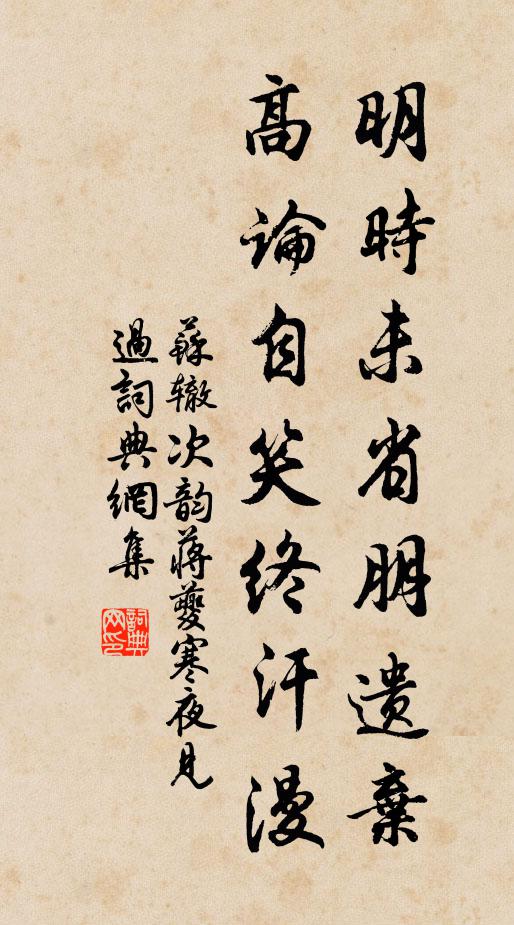 明時未省朋遺棄
高論自笑終汗漫
蘇辙次韵蔣夔寒夜見
過詞典網集
詞典网印